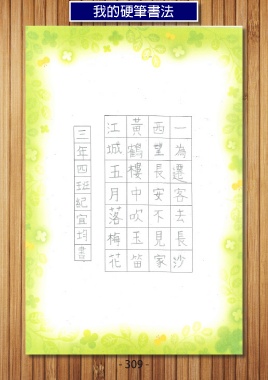 我的硬筆書法
一為遷客去長沙
西望長安不見家
黃鶴樓中吹玉笛
江城五月落梅花
三年四班紀宜均書
- 309 -